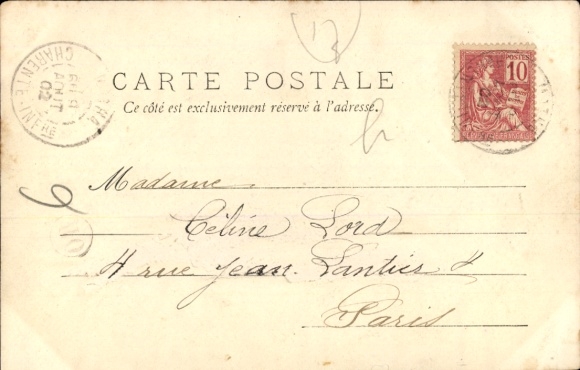 13
CARTE POSTALE
Ce côté est exclusivement réservé à l'adresse.
POSTES
10
CHARENTE-INFRE
AOUT
02
Madame
Céline Lord
4 rue Jean-Lantier 4
Paris
6